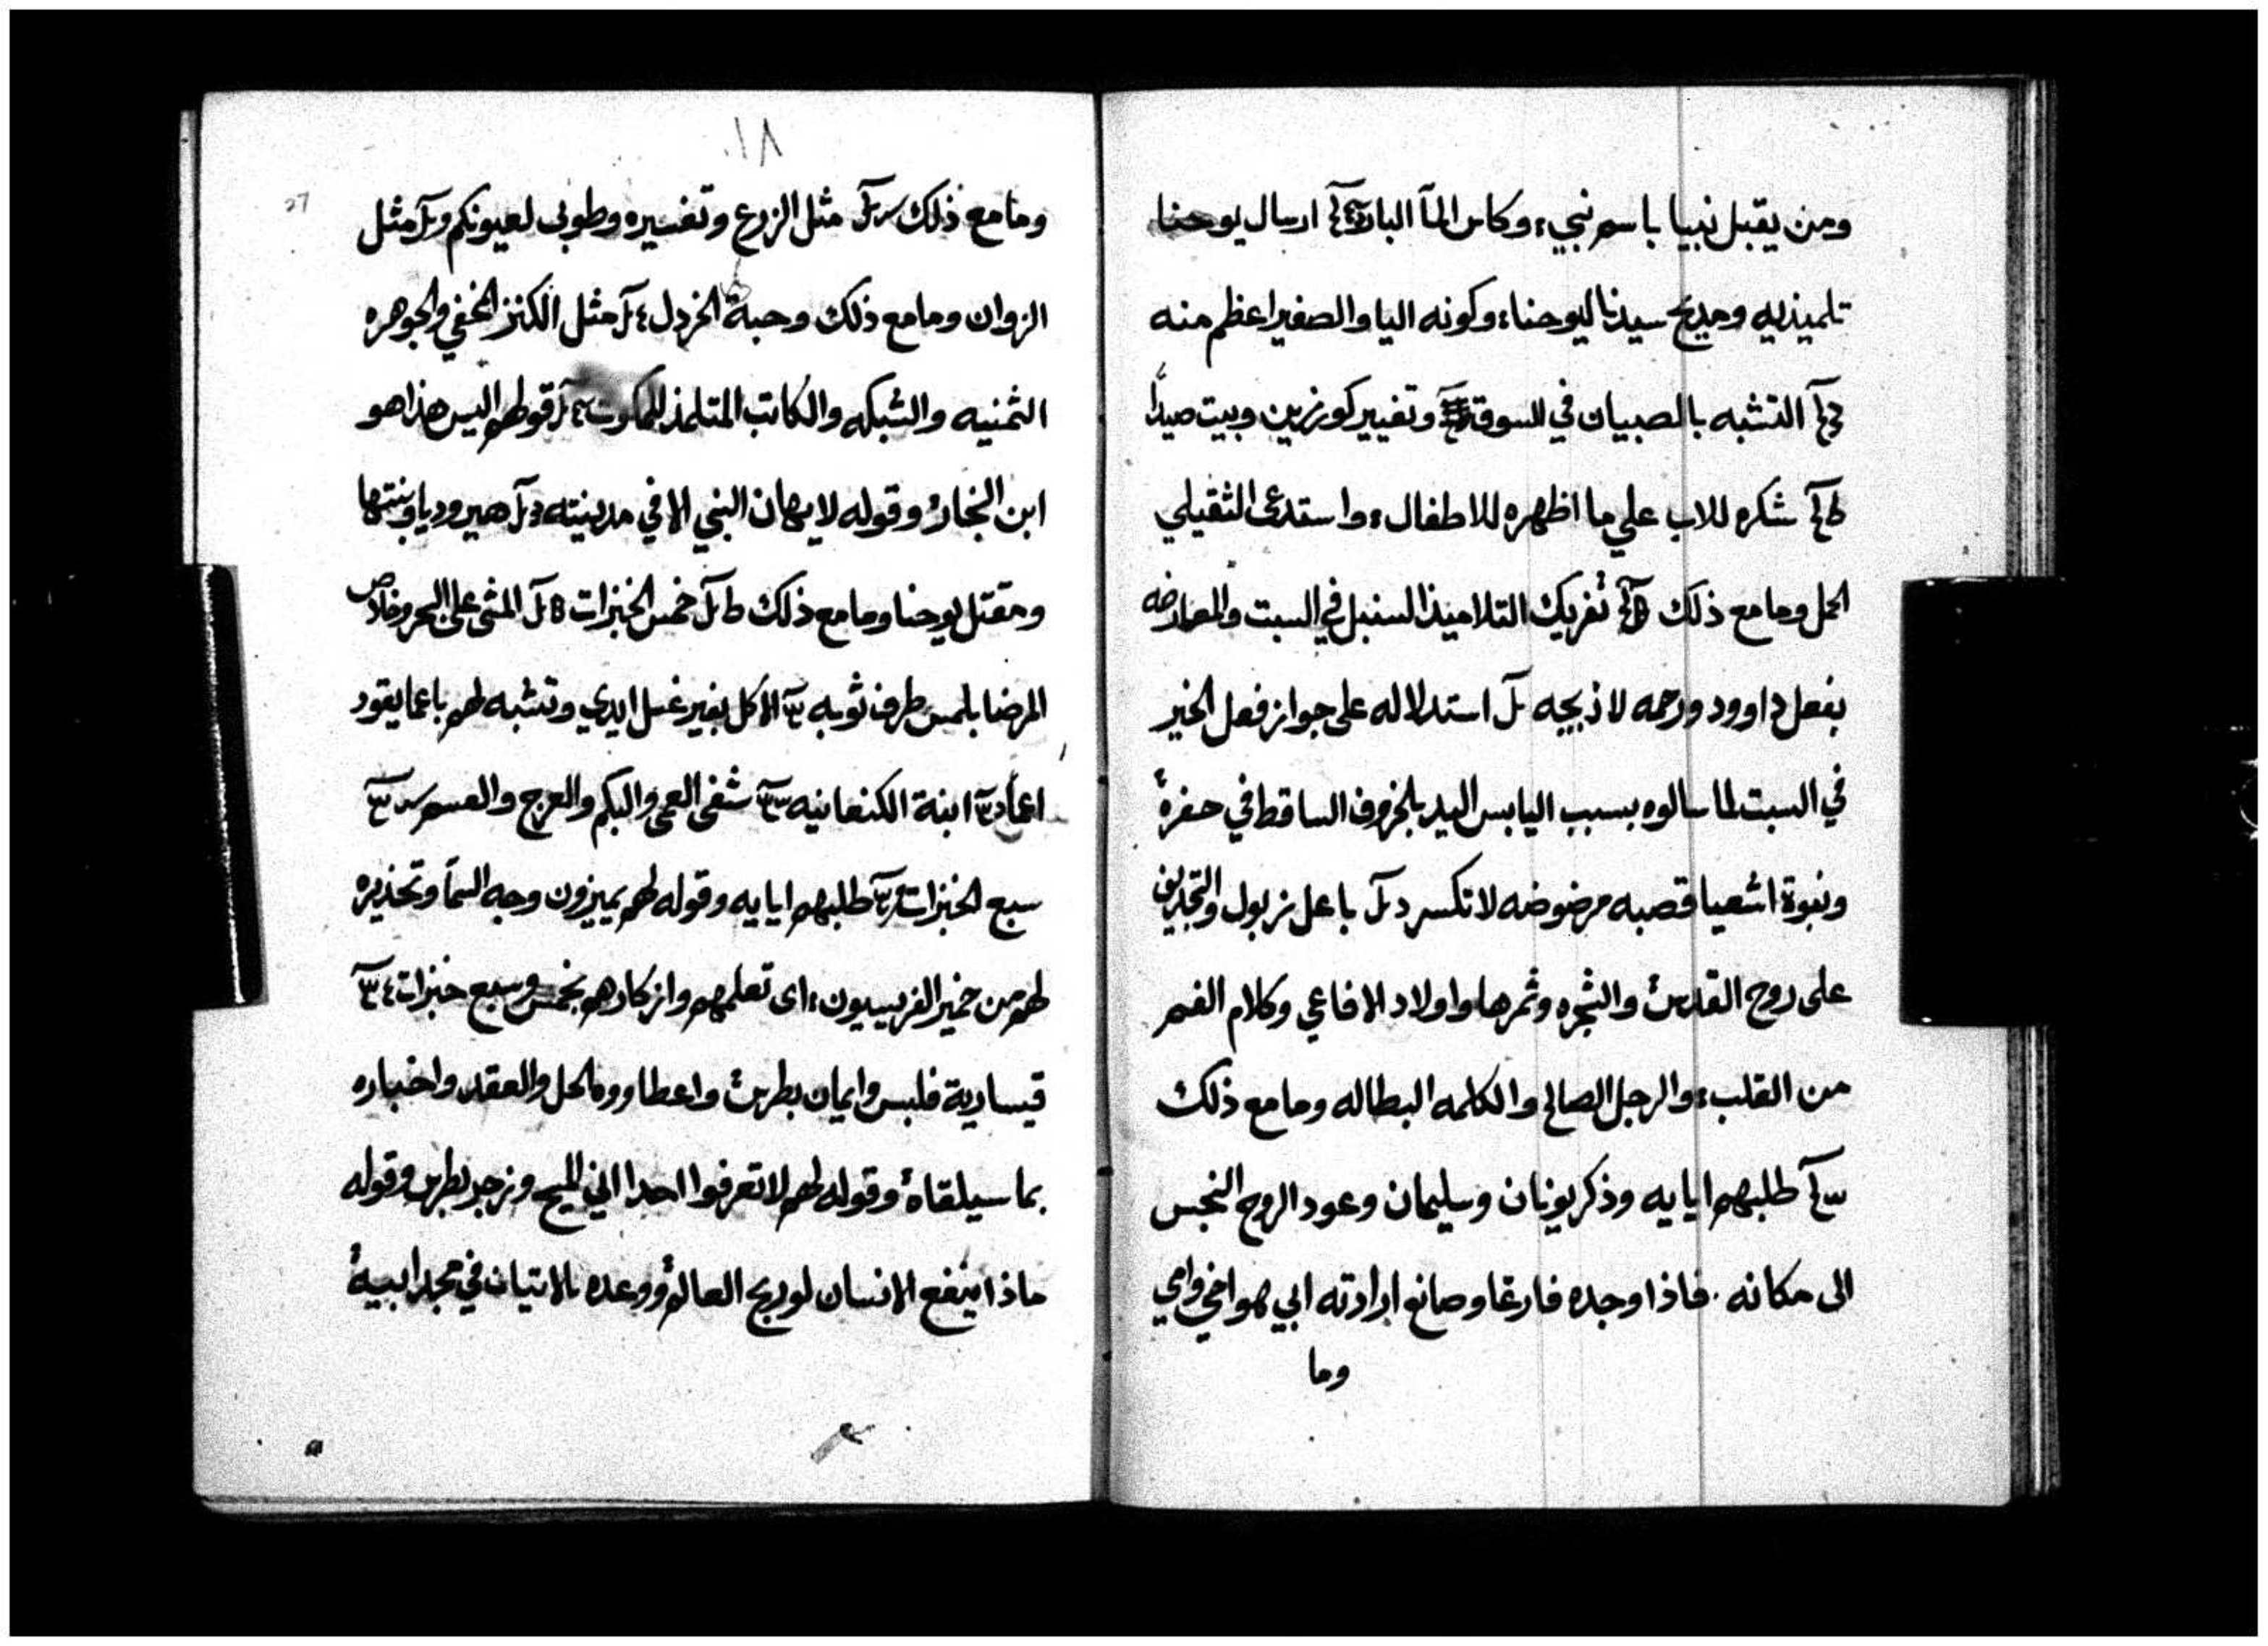 ومن يقبل نبيا باسم نبي، وكاس المآ البارد ارسال يوحنا
تلميذيه ومديح سيدنا ليوحنا، وكونه اليا والصغير اعظم منه
التشبه بالصبيان في السوق وتغيير كورزين وبيت صيدا
شكره للاب علي ما اظهره للاطفال، واستدعى الثقيلي
الحمل وما مع ذلك تفريك التلاميذ السنبل في السبت والمعارضه
بفعل داوود ورحمه لا ذبيحه استدلاله على جواز فعل الخير
في السبت لما سالوه بسبب اليابس اليد بالخروف الساقط في حفرة
ونبوة اشعيا قصبه مرضوضه لا تكسر باعل زبول والتجديف
على روح القدس والشجره وثمرها واولاد الافاعي وكلام الفم
من القلب، والرجل الصالح والكلمه البطاله وما مع ذلك
طلبهم ايايه وذكر يونان وسليمان وعود الروح النجس
الى مكانه. فاذا وجده فارغا وصانع ارادته ابي هو اخي وامي
وما
١٨
27
وما مع ذلك مثل الزرع وتفسيره وطوبى لعيونكم مثل
الزوان وما مع ذلك وحبة الخردل مثل الكنز الخفي والجوهره
الثمنيه والشبكه والكاتب المتلمذ للملكوت قولهم اليس هذا هو
ابن النجار وقوله لا يهان النبي الا في مدينته هيروديا وبنتها
ومقتل يوحنا وما مع ذلك خمس الخبزات المشى على البحر وخلاص
المرضا بلمس طرف ثوبه الاكل بغير غسل ايدي وتشبه لهم باعما يقود
اعما ابنة الكنعانيه شفى العمي والبكم والعرج والعسم
سبع الخبزات طلبهم ايايه وقوله لهم يميزون وجه السمآ وتحذيره
لهم من خمير الفريسيون، اى تعلمهم وازكارهم بخمس وسبع خبزات
قيسارية فلبس وايمان بطرس واعطاووه الحل والعقد واخباره
بما سيلقاه وقوله لهم لا تعرفوا احدا اني المسيح وزجر بطرس وقوله
ماذا ينفع الانسان لو ربح العالم ووعده بالاتيان في مجد ابيه